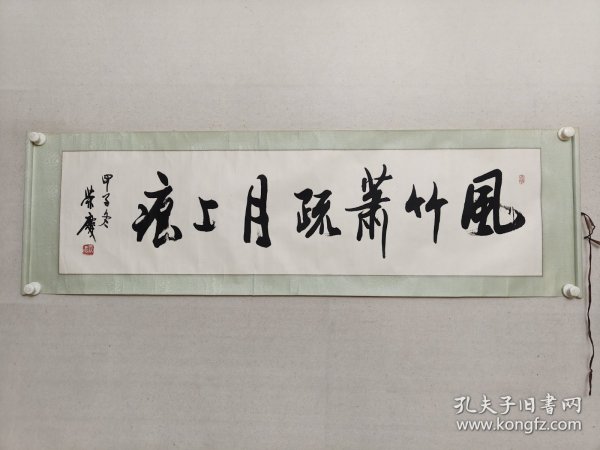 風竹蕭疏月上痕
甲子冬
荣慶
孔夫子旧书网
www.kongfz.com